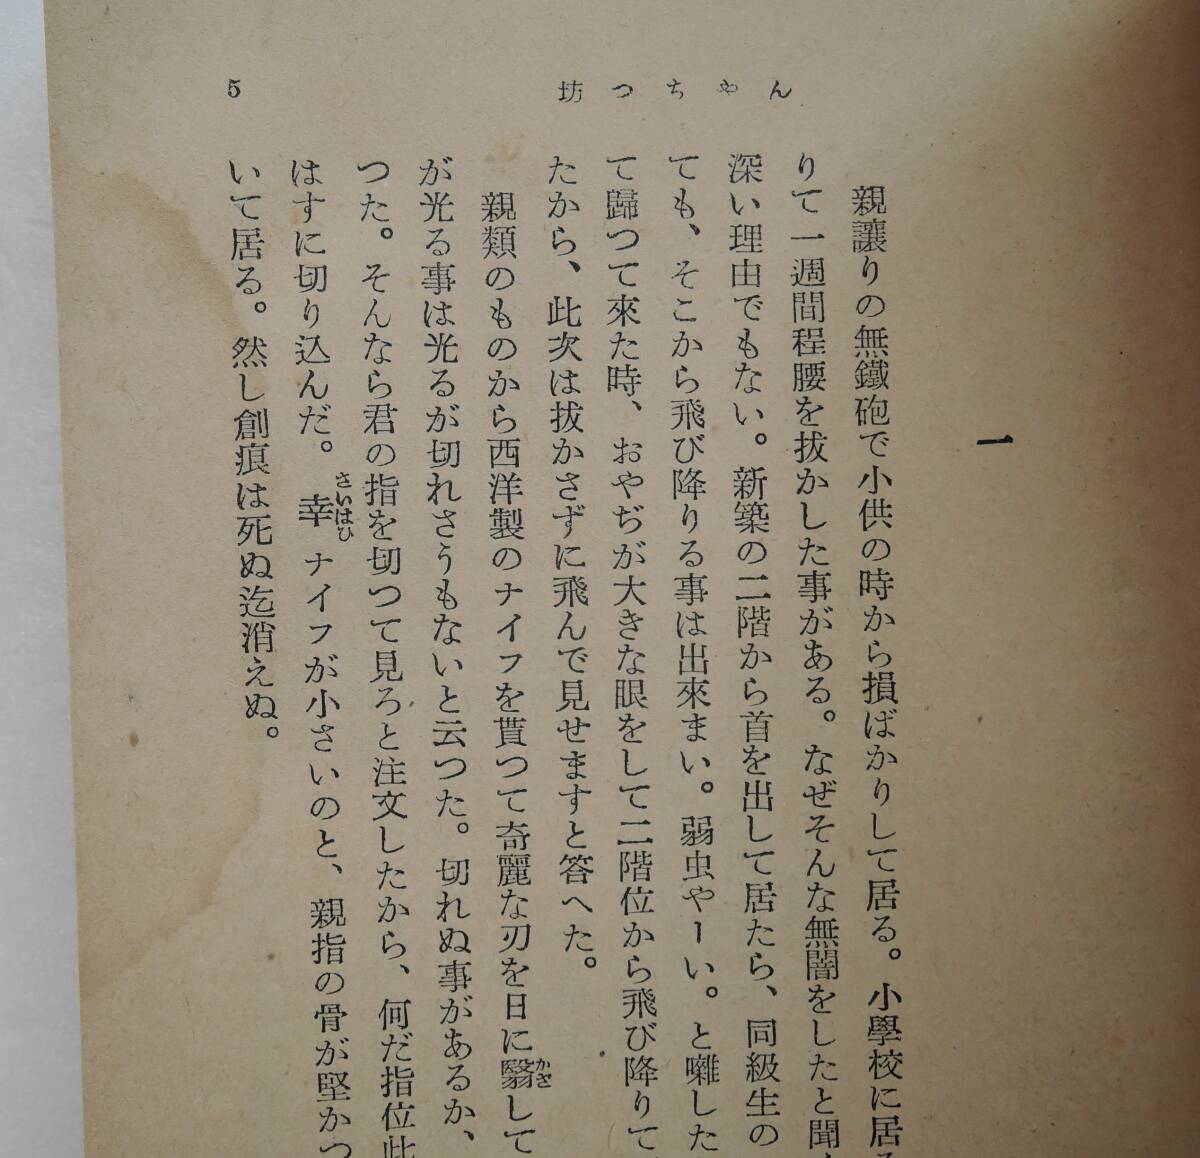 坊つちやん
5
一
親讓りの無鐵砲で小供の時から損ばかりして居る。小學校に居
りて一週間程腰を拔かした事がある。なぜそんな無闇をしたと聞
深い理由でもない。新築の二階から首を出して居たら、同級生の
ても、そこから飛び降りる事は出來まい。弱虫やーい。と囃した
て歸つて來た時、おやぢが大きな眼をして二階位から飛び降りて
たから、此次は拔かさずに飛んで見せますと答へた。
親類のものから西洋製のナイフを貰つて奇麗な刃を日に翳かざして
が光る事は光るが切れさうもないと云つた。切れぬ事があるか、
つた。そんなら君の指を切つて見ろと注文したから、何だ指位此
はすに切り込んだ。幸さいはひナイフが小さいのと、親指の骨が堅かつ
いて居る。然し創痕は死ぬ迄消えぬ。